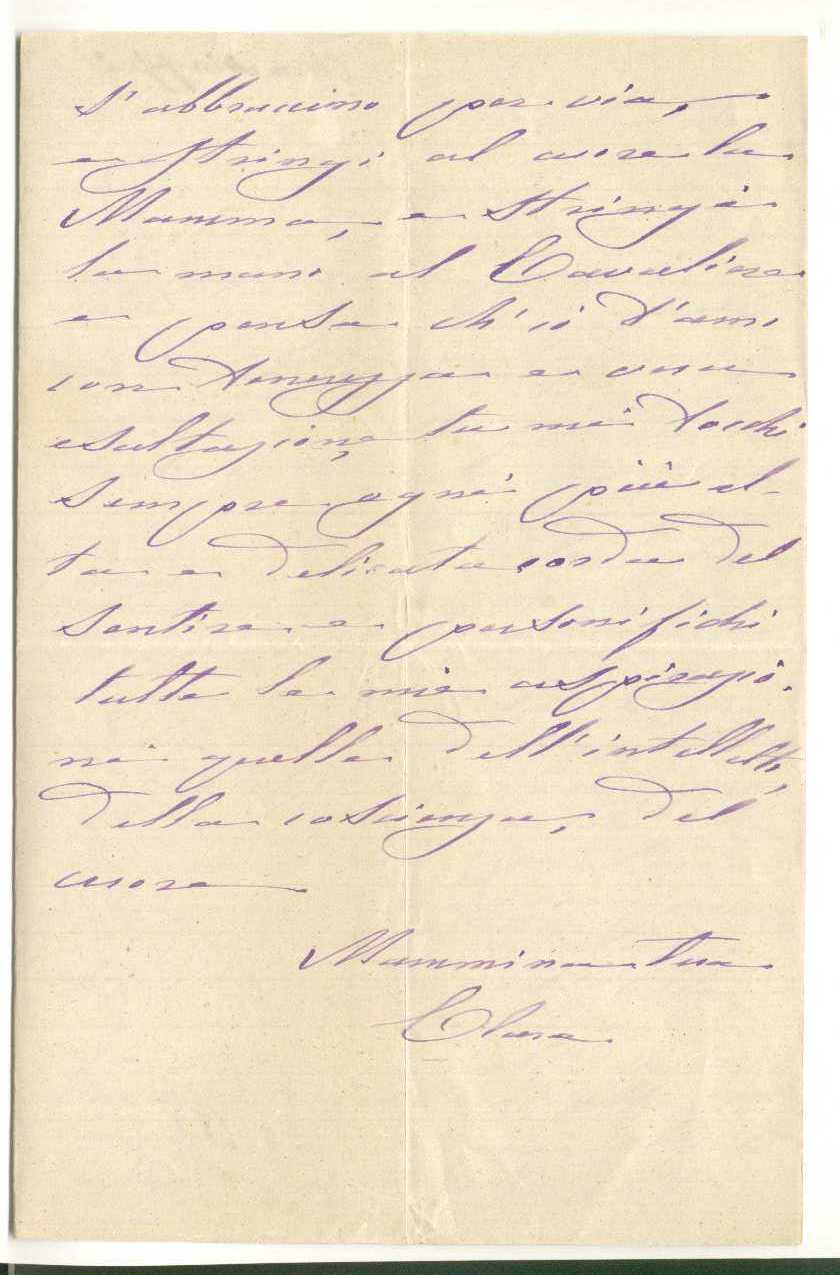 s'abbraccino per via,
e stringi al cuore la
Mamma, e stringi
la mano al Cavaliere
e pensa ch'io t'amo
con tenerezza e con
esultazione, tu mi tocchi
sempre ogni più al-
ta e delicata corda del
sentire e personifichi
tutte le mie aspirazio-
ni quelle dell'intelletto,
della coscienza, del
cuore
Mammina tua
Clara